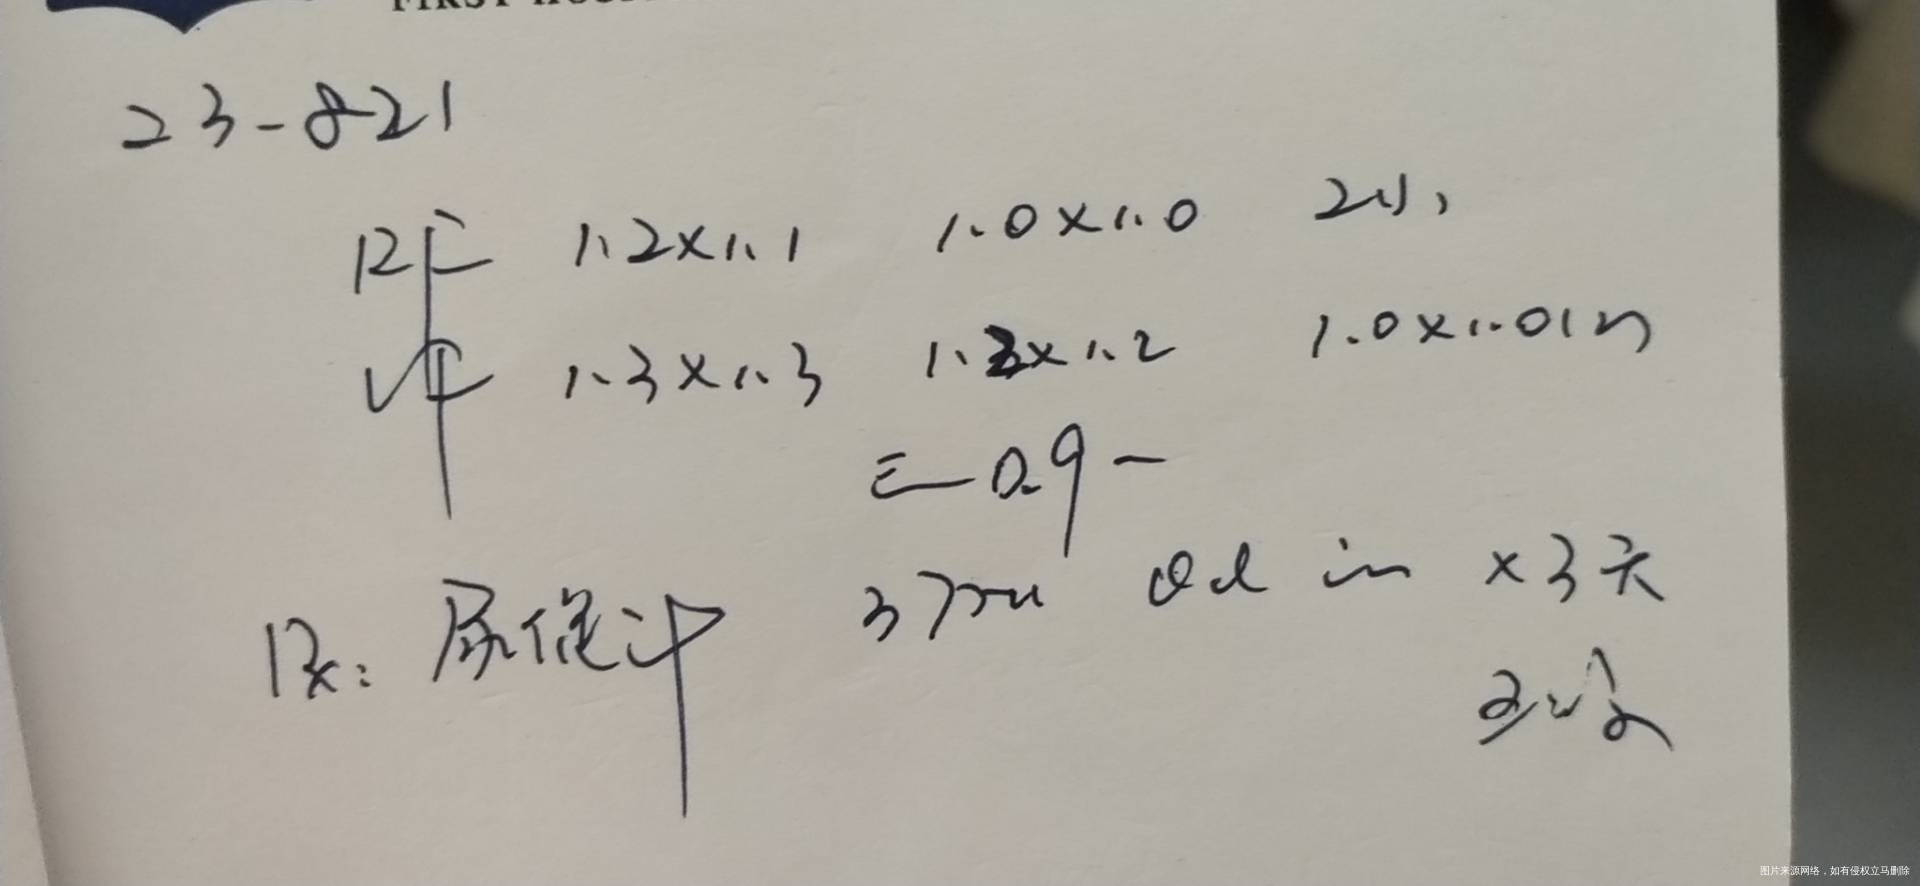 23-8-21
RF 1.2×1.1 1.0×1.0 2小,
LF 1.3×1.3 1.3×1.2 1.0×1.0 1个
E 0.9-
Rx: 尿促 375u Qd im ×3天
图片来源网络，如有侵权立马删除